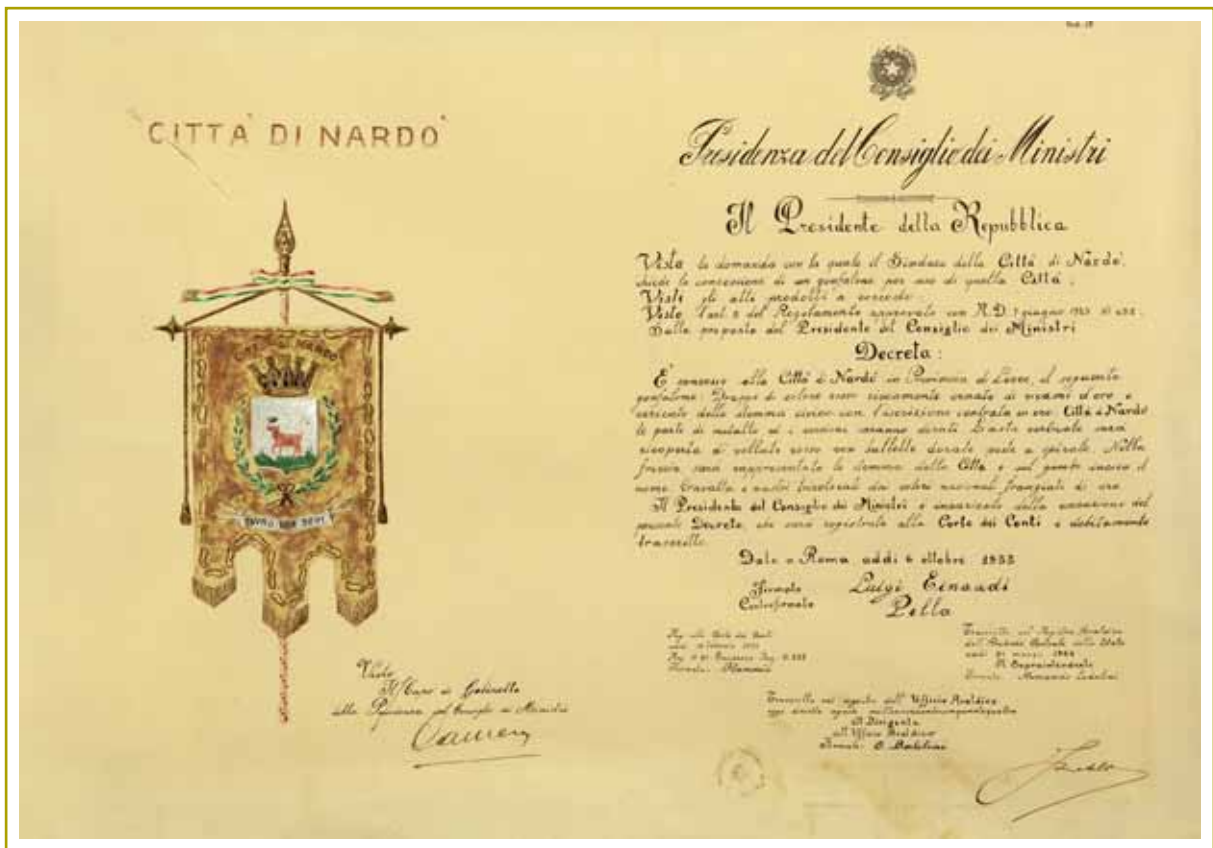 CITTA' DI NARDO'
CITTÀ DI NARDO
TAURO NON BOVI
Visto
Il Capo di Gabinetto
della Presidenza del Consiglio dei Ministri
Presidenza del Consiglio dei Ministri
Il Presidente della Repubblica
Vista la domanda con la quale il Sindaco della Città di Nardò,
chiede la concessione di un gonfalone per uso di quella Città;
Visti gli atti prodotti a corredo;
Visto l'art. 5 del Regolamento approvato con R.D. 7 giugno 1943 N° 652;
Sulla proposta del Presidente del Consiglio dei Ministri
Decreta:
È concesso alla Città di Nardò in Provincia di Lecce, il seguente
gonfalone: Drappo di colore rosso riccamente ornato di ricami d'oro e
caricato dello stemma civico con l'iscrizione centrata in oro: Città di Nardò
Le parti di metallo ed i cordoni saranno dorati. L'asta verticale sarà
ricoperta di velluto rosso con bullette dorate poste a spirale. Nella
freccia sarà rappresentato lo stemma della Città e sul gambo inciso il
nome. Cravatta e nastri tricolorati dai colori nazionali frangiati di oro.
Il Presidente del Consiglio dei Ministri è incaricato della esecuzione del
presente Decreto, che sarà registrato alla Corte dei Conti e debitamente
trascritto.
Dato a Roma addì 6 ottobre 1953
Firmato Luigi Einaudi
Controfirmato Pella
Reg. alla Corte dei Conti
Trascritto nel Registro Araldico
dell'Archivio Centrale dello Stato
Il Sopraintendente
Firmato: Armando Lodolini
Trascritto nel registro dell'Ufficio Araldico
Il Dirigente
all'Ufficio Araldico
Firmato: